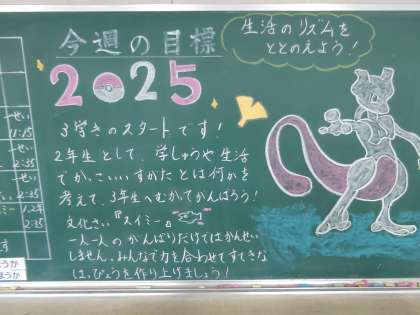 今週の目標
生活のリズムを
ととのえよう!
2025
3学きのスタートです!
2年生として、学しゅうや生活
でかっこいいすがたとは何かを
考えて、3年生へむかってがんばろう!
文化さい『スイミー』
一人一人のがんばりだけではかんせい
しません。みんなで力を合わせてすてきな
はっぴょうを作り上げましょう!
せい
11:15
せい
2:35
2:35
1,2年
2:35